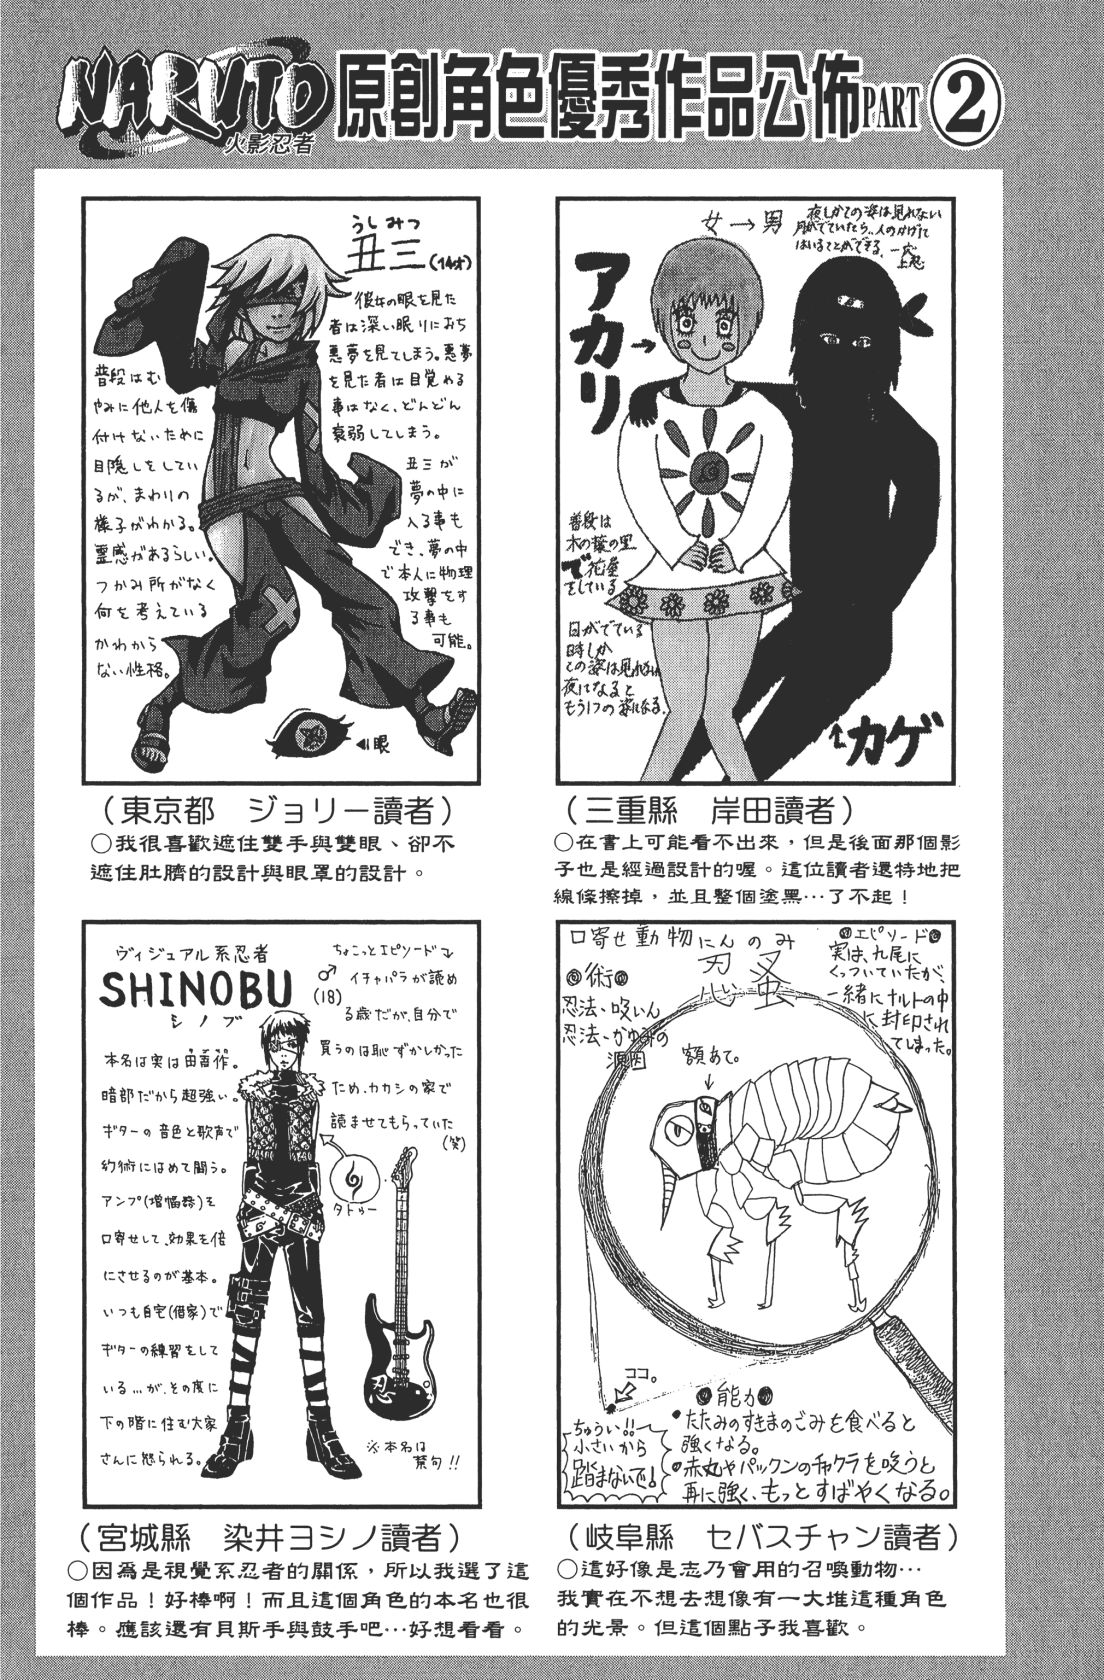 NARUTO
火影忍者
原創角色優秀作品公佈PART②
うしみつ
丑三(14才)
彼女の眼を見た
者は深い眠りにおち
悪夢を見てしまう。悪夢
を見た者は目覚める
事はなく、どんどん
衰弱してしまう。
丑三が
夢の中に
入る事も
でき、夢の中
で本人に物理
攻撃をす
る事も
可能。
普段はむ
やみに他人を傷
付けないために
目隠しをしてい
るが、まわりの
様子がわかる。
霊感があるらしい。
つかみ所がなく
何を考えている
かわから
ない性格。
眼
(東京都 ジョリー讀者)
○我很喜歡遮住雙手與雙眼、卻不
遮住肚臍的設計與眼罩的設計。
女→男
夜しかこの姿は見れない
月がでていたら、人のかげに
はいることができる。一応
上忍
アカリ
普段は
木の葉の里
で花屋
をしている
日がでている
時しか
この姿は見れない
夜になると
もう1つの姿になる。
カゲ
(三重縣 岸田讀者)
○在書上可能看不出來，但是後面那個影
子也是經過設計的喔。這位讀者還特地把
線條擦掉，並且整個塗黑…了不起！
ヴィジュアル系忍者
SHINOBU
シノブ
♂
(18)
ちょこっとエピソード
イチャパラが読め
る歳だが、自分で
買うのは恥ずかしかった
ため、カカシの家で
読ませてもらっていた
(笑)
本名は実は田吾作。
暗部だから超強い。
ギターの音色と歌声で
幻術にはめて闘う。
アンプ(増幅器)を
口寄せして、効果を倍
にさせるのが基本。
いつも自宅(借家)で
ギターの練習をして
いる…が、その度に
下の階に住む大家
さんに怒られる。
タトゥー
忍
※本名は
禁句!!
(宮城縣 染井ヨシノ讀者)
○因為是視覺系忍者的關係，所以我選了這
個作品！好棒啊！而且這個角色的本名也很
棒。應該還有貝斯手與鼓手吧…好想看看。
口寄せ動物
にんのみ
忍蚤
エピソード
実は、九尾に
くっついていたが、
一緒にナルトの中
に封印され
てしまった。
術
忍法、吸いん
忍法、かゆみの
源因
額あて。
ココ。
ちゅうい!!
小さいから
踏まないで!
能力
・たたみのすきまのごみを食べると
強くなる。
・赤丸やパックンのチャクラを吸うと
再に強く、もっとすばやくなる。
(岐阜縣 セバスチャン讀者)
○這好像是志乃會用的召喚動物…
我實在不想去想像有一大堆這種角色
的光景。但這個點子我喜歡。